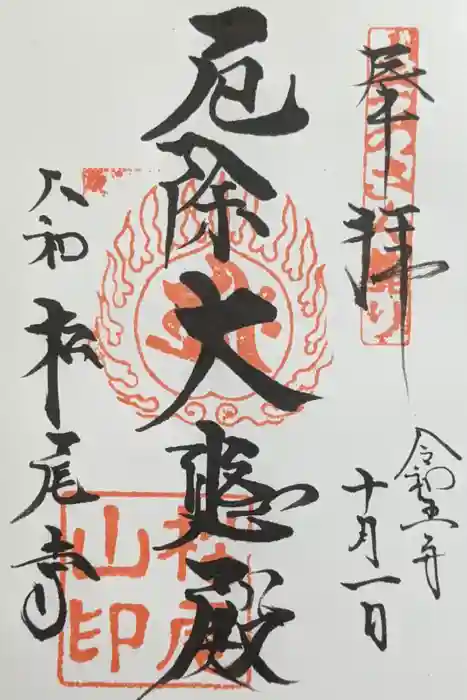 奉拝
令和五年
十月一日
厄除大悲殿
大和
松尾寺
山
印